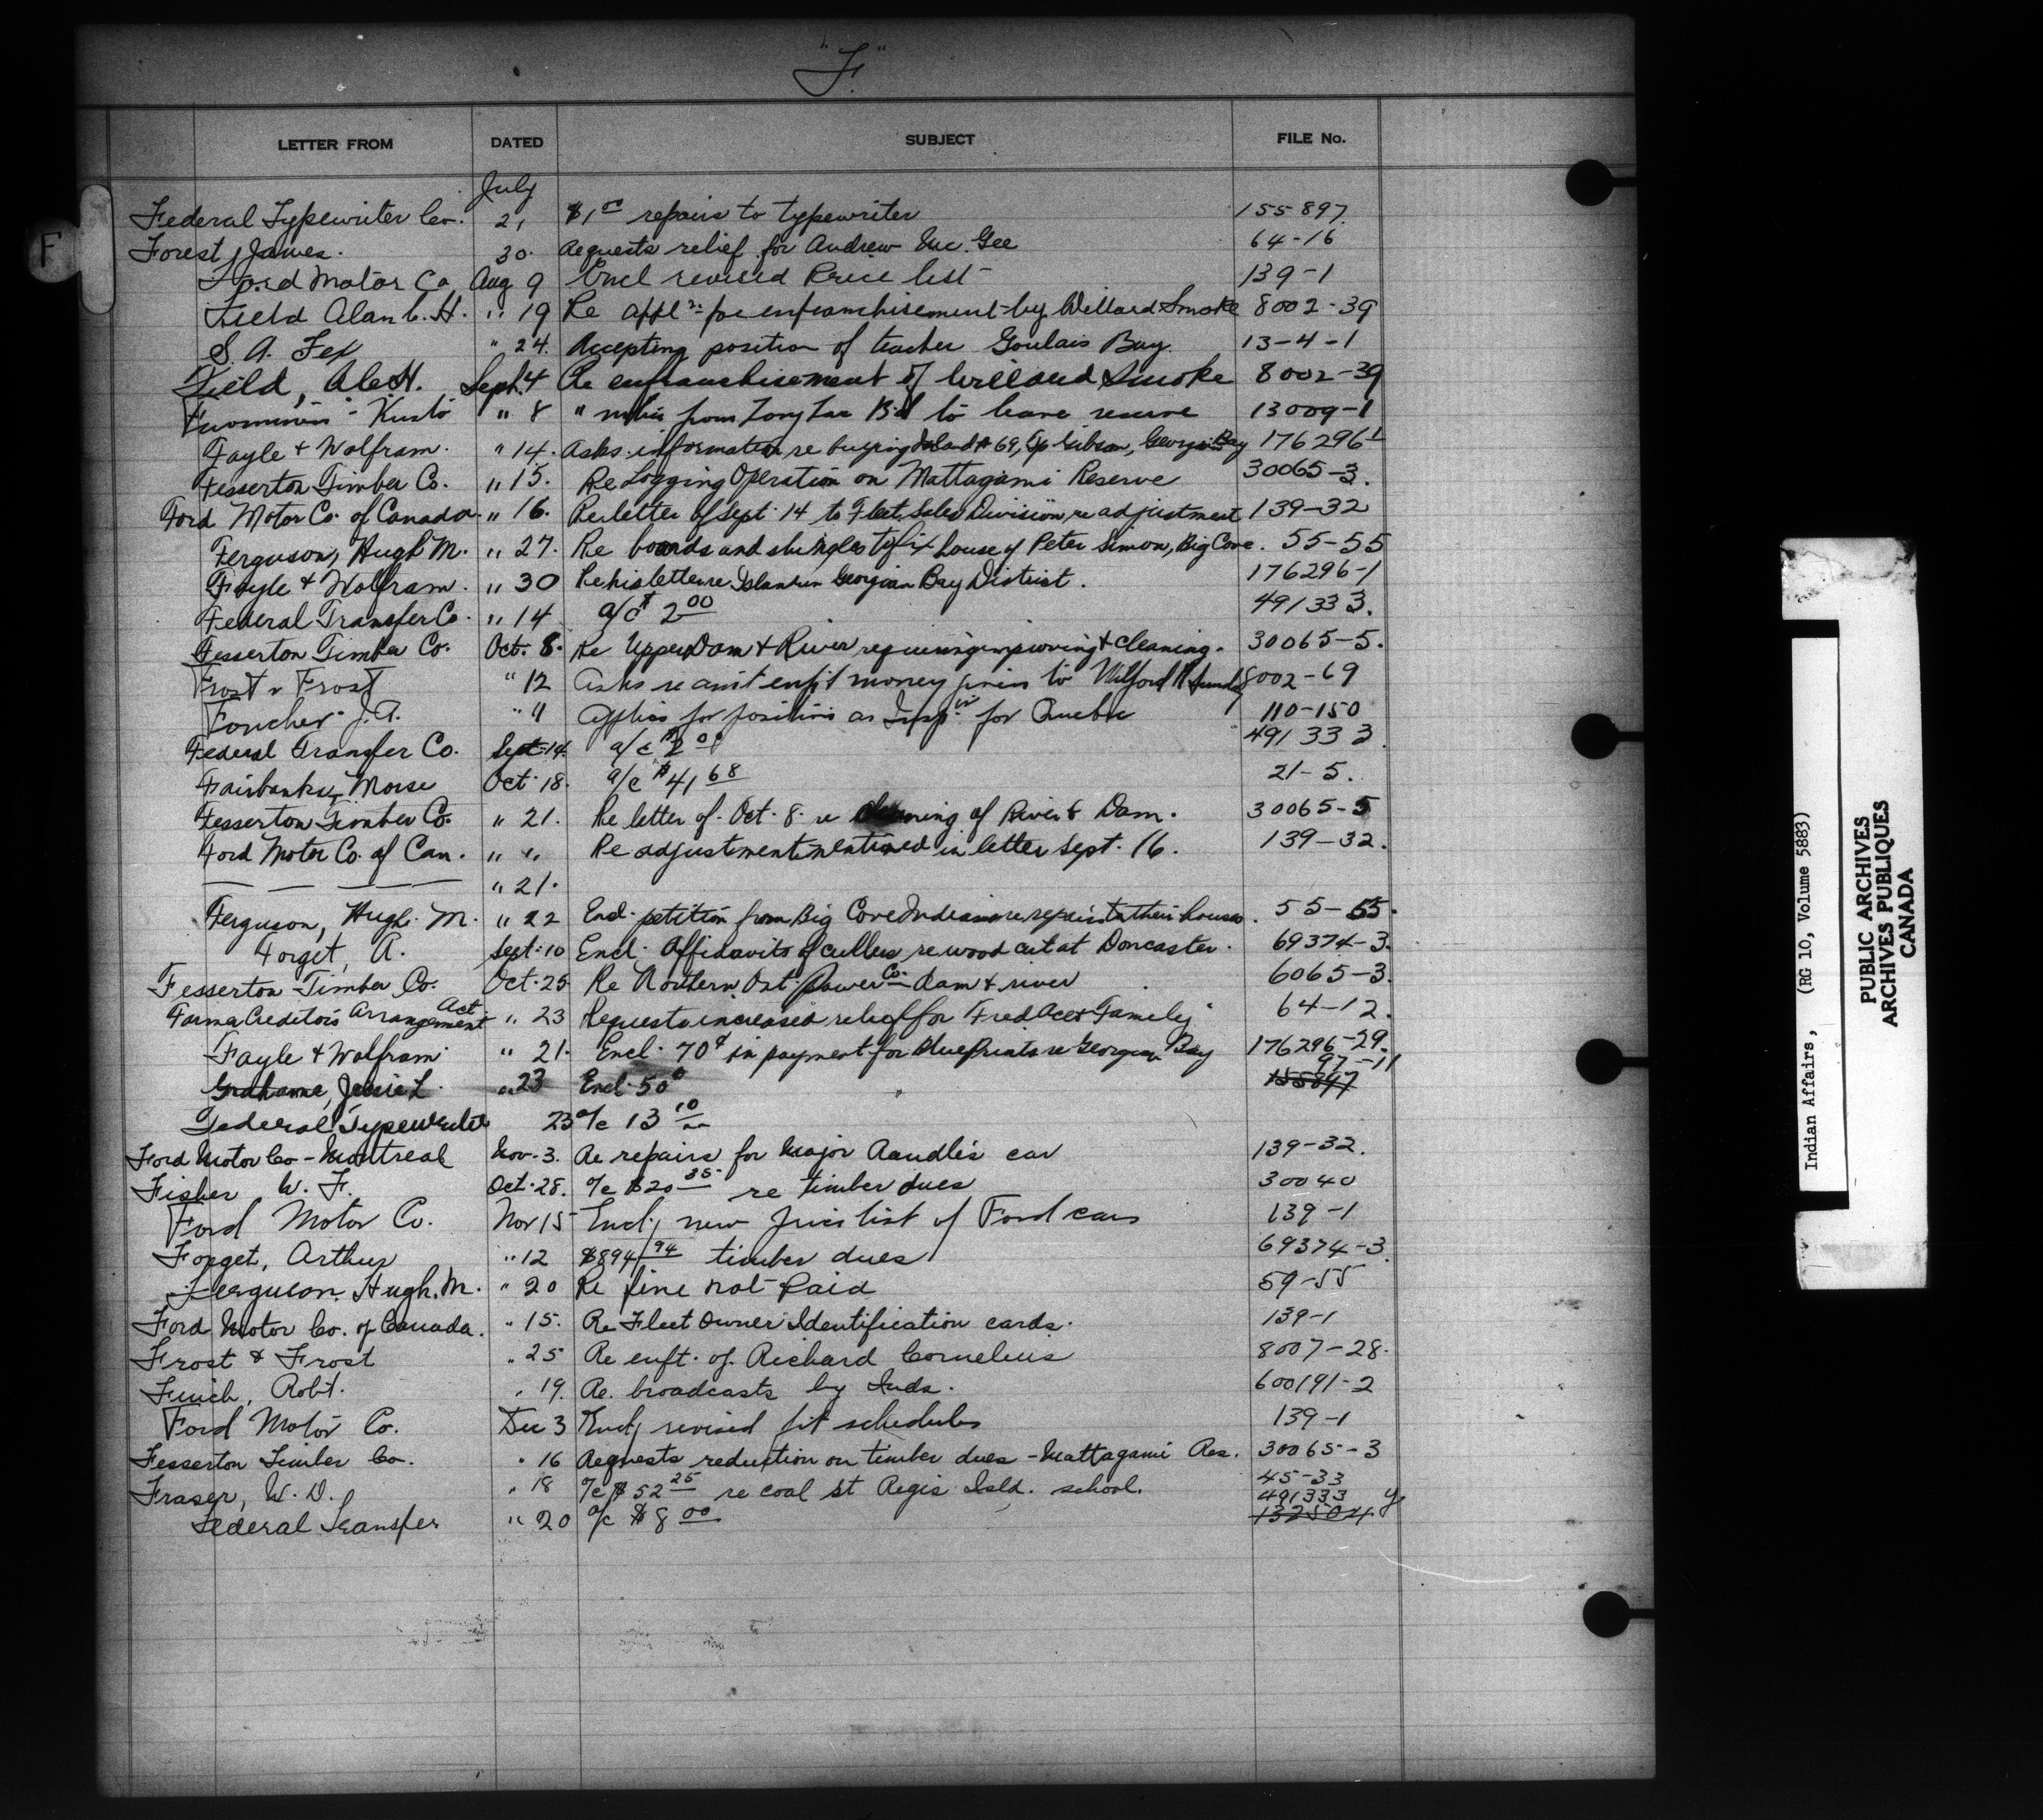 "F"
LETTER FROM DATED SUBJECT FILE No.
July
Federal Typewriter Co. 21 $1.00 repairs to typewriter 155897.
Forest, James. 30. Requests relief for Andrew Mc. Gee 64-16
Ford Motor Co, Aug 9 Encl revised Price list 139-1
Field Alan C. H. " 19 Re appln for enfranchisement by Willard Smoke 8002-39
S. A. Fex " 24. Accepting position of teacher Goulais Bay. 13-4-1
Field, Ale H. Sept. 4 Re enfranchisement of Willard Smoke 8002-39
Kusto " 8 " from to leave reserve 13009-1
Fayle & Wolfram. " 14. Asks information re buying Island # 69, Gibson, Georgian Bay 176296-1
Fesserton Timber Co. " 15. Re Logging Operation on Mattagami Reserve 30065-3.
Ford Motor Co. of Canada " 16. Re letter of Sept. 14 to Fleet Sales Division re adjustment 139-32
Ferguson, Hugh M. " 27. Re boards and shingles to fix house of Peter Simon, Big Cove. 55-55
Fayle & Wolfram. " 30 Re his letter re Island in Georgian Bay District. 176296-1
Federal Transfer Co. " 14 a/c $2.00 491333.
Fesserton Timber Co. Oct. 8. Re Upper Dam & River requiring improving & cleaning. 30065-5.
Frost & Frost " 12 Asks re amt enf't money given to Wilford 8002-69
Foucher J.A. " 11 Applies for position as Insp. for Quebec 110-150
Federal Transfer Co. Sept. 14. a/c $2.00 491333.
Fairbanks, Morse Oct. 18. a/c $41.68 21-5.
Fesserton Timber Co. " 21. Re letter of Oct. 8. re cleaning of River & Dam. 30065-5
Ford Motor Co. of Can. " " Re adjustment mentioned in letter Sept. 16. 139-32.
— — — — " 21.
Ferguson, Hugh. M. " 22 Encl. petition from Big Cove Indians re repairs to their houses. 55-55.
Forget, A. Sept. 10 Encl. Affidavits of cullers re wood cut at Doncaster. 69374-3.
Fesserton Timber Co. Oct. 25 Re Northern Ont. Power Co. dam & river 6065-3.
Farmer Creditors Arrangement Act " 23 Requests increased relief for Fred Ace & Family 64-12.
Fayle & Wolfram " 21. Encl. 70¢ in payment for blueprints re Georgian Bay 176296-29.
97-11
Grahame, Jessie L. " 23 Encl. 50¢ 155897
Federal Typewriter 23 a/c 13.10
Ford Motor Co - Montreal Nov. 3. Re repairs for Major Randle's car 139-32.
Fisher W. F. Oct. 28. a/c $20.35 re timber dues 30040
Ford Motor Co. Nov 15 Encl, new price list of Ford cars 139-1
Forget, Arthur " 12 $894.94 timber dues 69374-3.
Ferguson, Hugh. M. " 20 Re fine not paid 59-55
Ford Motor Co. of Canada. " 15. Re Fleet Owner Identification cards. 139-1
Frost & Frost " 25 Re enft. of Richard Cornelius 8007-28.
Finch, Robt. " 19. Re. broadcasts by Inds. 600191-2
Ford Motor Co. Dec 3 Encl, revised schedules 139-1
Fesserton Timber Co. " 16 Requests reduction on timber dues - Mattagami Res. 30065-3
Fraser, W. D. " 18 a/c $52.25 re coal St Regis Isld. school. 45-33
491333
Federal Transfer " 20 a/c $8.00 132504
F
Indian Affairs, (RG 10, Volume 5883)
PUBLIC ARCHIVES
ARCHIVES PUBLIQUES
CANADA